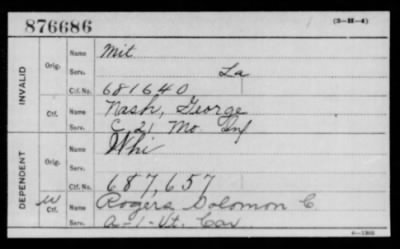 876686
(3-H-4)
INVALID
Orig.
Name Mit
Serv. La
Ctf. No. 681640
Ctf.
Name Nash, George
Serv. C 21 Mo Inf
DEPENDENT
Orig.
Name Whi
Serv.
Ctf. No. 687,657
W Ctf.
Name Rogers Solomon C
Serv. A-1-Vt. Cav